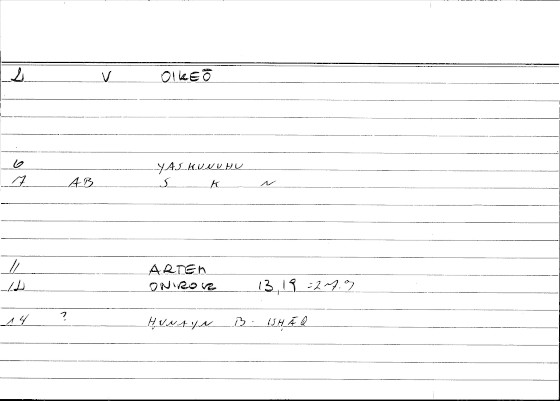 2 V OIKEŌ
6 YASKUNUHU
7 AB S K N
11 ARTEM
12 ONIROCR 13,19 = 27.9
14 ? ḤUNAYN B. ISḤĀQ